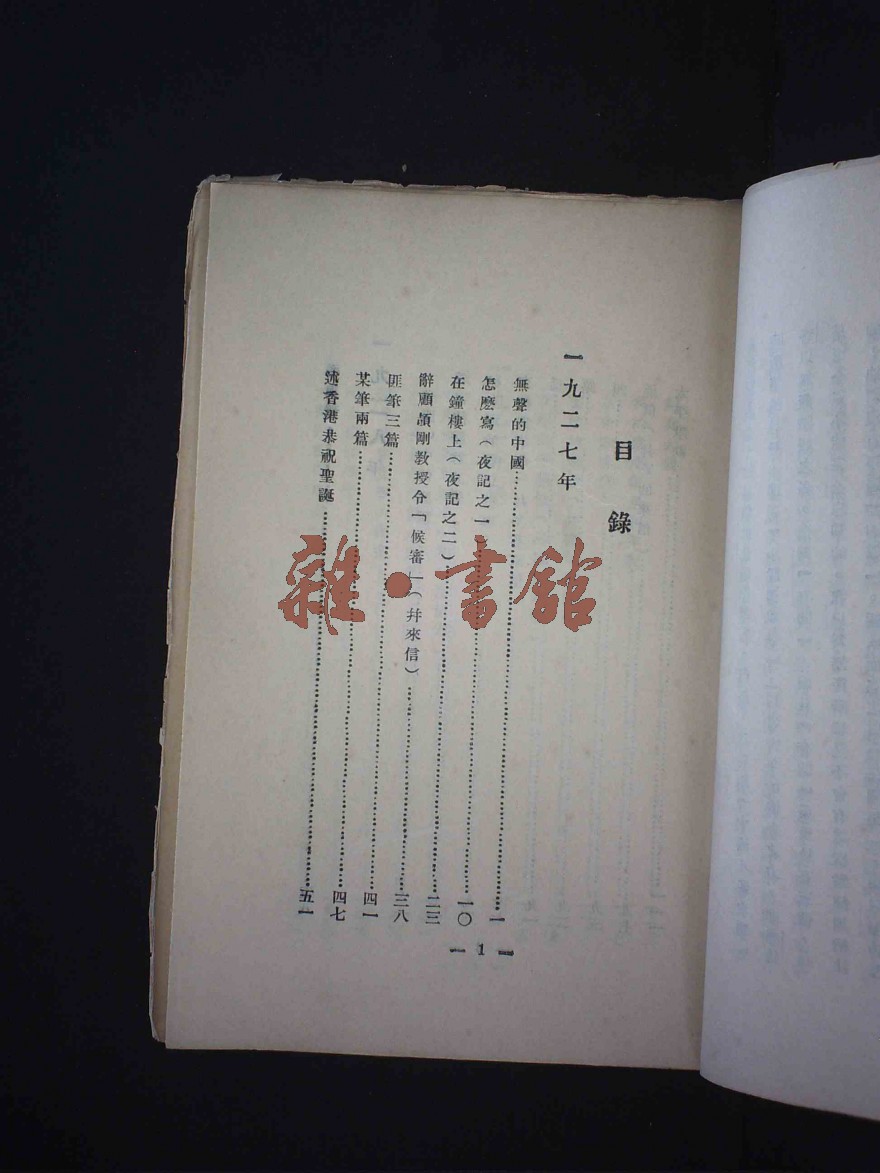 目錄
一九二七年
無聲的中國……一
怎麽寫（夜記之一）……一〇
在鐘樓上（夜記之二）……二三
辭顧頡剛教授令「候審」（幷來信）……三八
匪筆三篇……四一
某筆兩篇……四七
述香港恭祝聖誕……五一
— 1 —
雜·書館